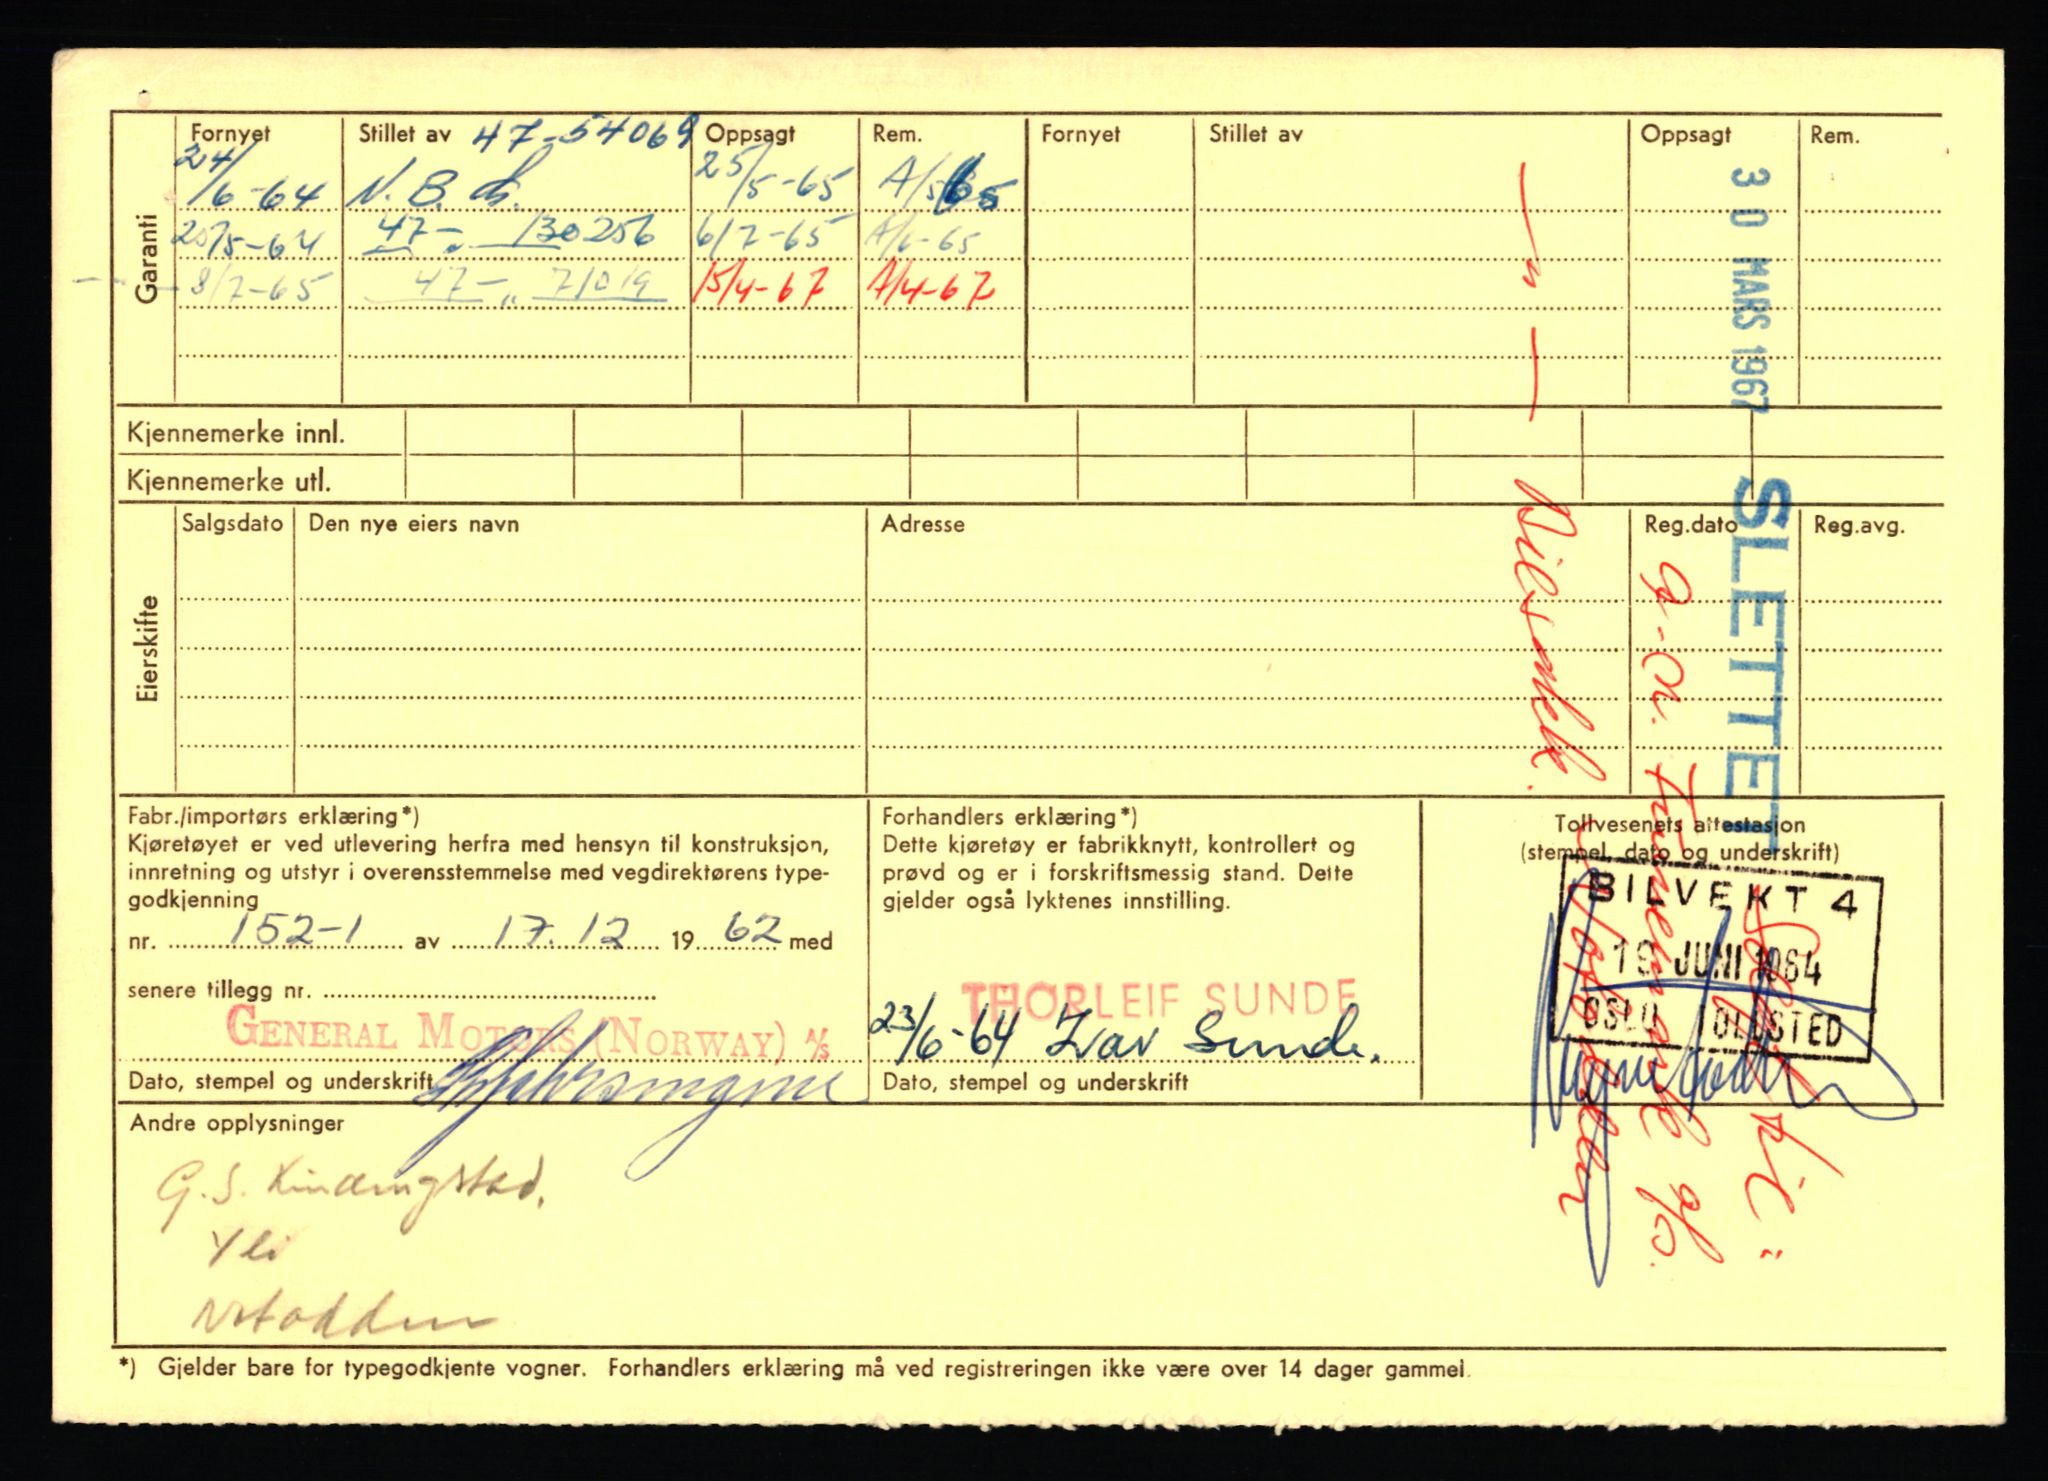 Garanti
Fornyet Stillet av 47-54069 Oppsagt Rem. Fornyet Stillet av Oppsagt Rem.
24/6-64 N.B. 25/5-65 A/5 65
20/5-64 47-„ 130256 6/7-65 A/6-65
8/7-65 47-„ 71019 15/4-67 A/4-67
Kjennemerke innl.
Kjennemerke utl.
Eierskifte
Salgsdato Den nye eiers navn Adresse Reg.dato Reg.avg.
30 MARS 1967 SLETTET
— " —
Solgt til
Fabr./importørs erklæring*)
Kjøretøyet er ved utlevering herfra med hensyn til konstruksjon,
innretning og utstyr i overensstemmelse med vegdirektørens type-
godkjenning
nr. 152-1 av 17.12 1962 med
senere tillegg nr.
GENERAL MOTORS (NORWAY) A/S
Dato, stempel og underskrift
Forhandlers erklæring*)
Dette kjøretøy er fabrikknytt, kontrollert og
prøvd og er i forskriftsmessig stand. Dette
gjelder også lyktenes innstilling.
THORLEIF SUNDE
23/6-64 Ivar Sunde.
Dato, stempel og underskrift
Tollvesenets attestasjon
(stempel, dato og underskrift)
BILVEKT 4
19 JUNI 1964
OSLO TOLLSTED
Andre opplysninger
G.S. Kindingstad.
Yli
Notodden
*) Gjelder bare for typegodkjente vogner. Forhandlers erklæring må ved registreringen ikke være over 14 dager gammel.